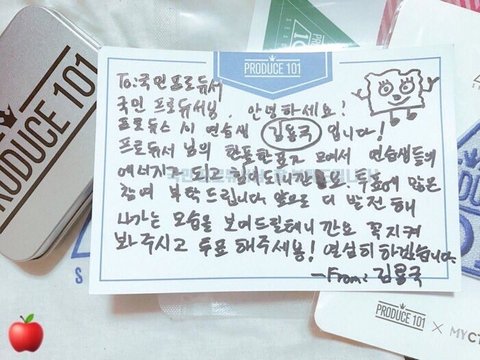 PRODUCE 101
PRODUCE 101
To: 국민 프로듀서
국민 프로듀서님, 안녕하세요!
프로듀스 101 연습생 김용국 입니다!
프로듀서 님의 한표한표가 모여서 연습생들의
에너지가 되고 힘이 되니깐요. 투표에 많은
참여 부탁드립니다. 앞으로 더 발전해
나가는 모습을 보여드릴테니깐요 꼭 지켜
봐주시고 투표 해주세용! 열심히 하겠습니다.
-From: 김용국
PRODUCE 101 × MYCT